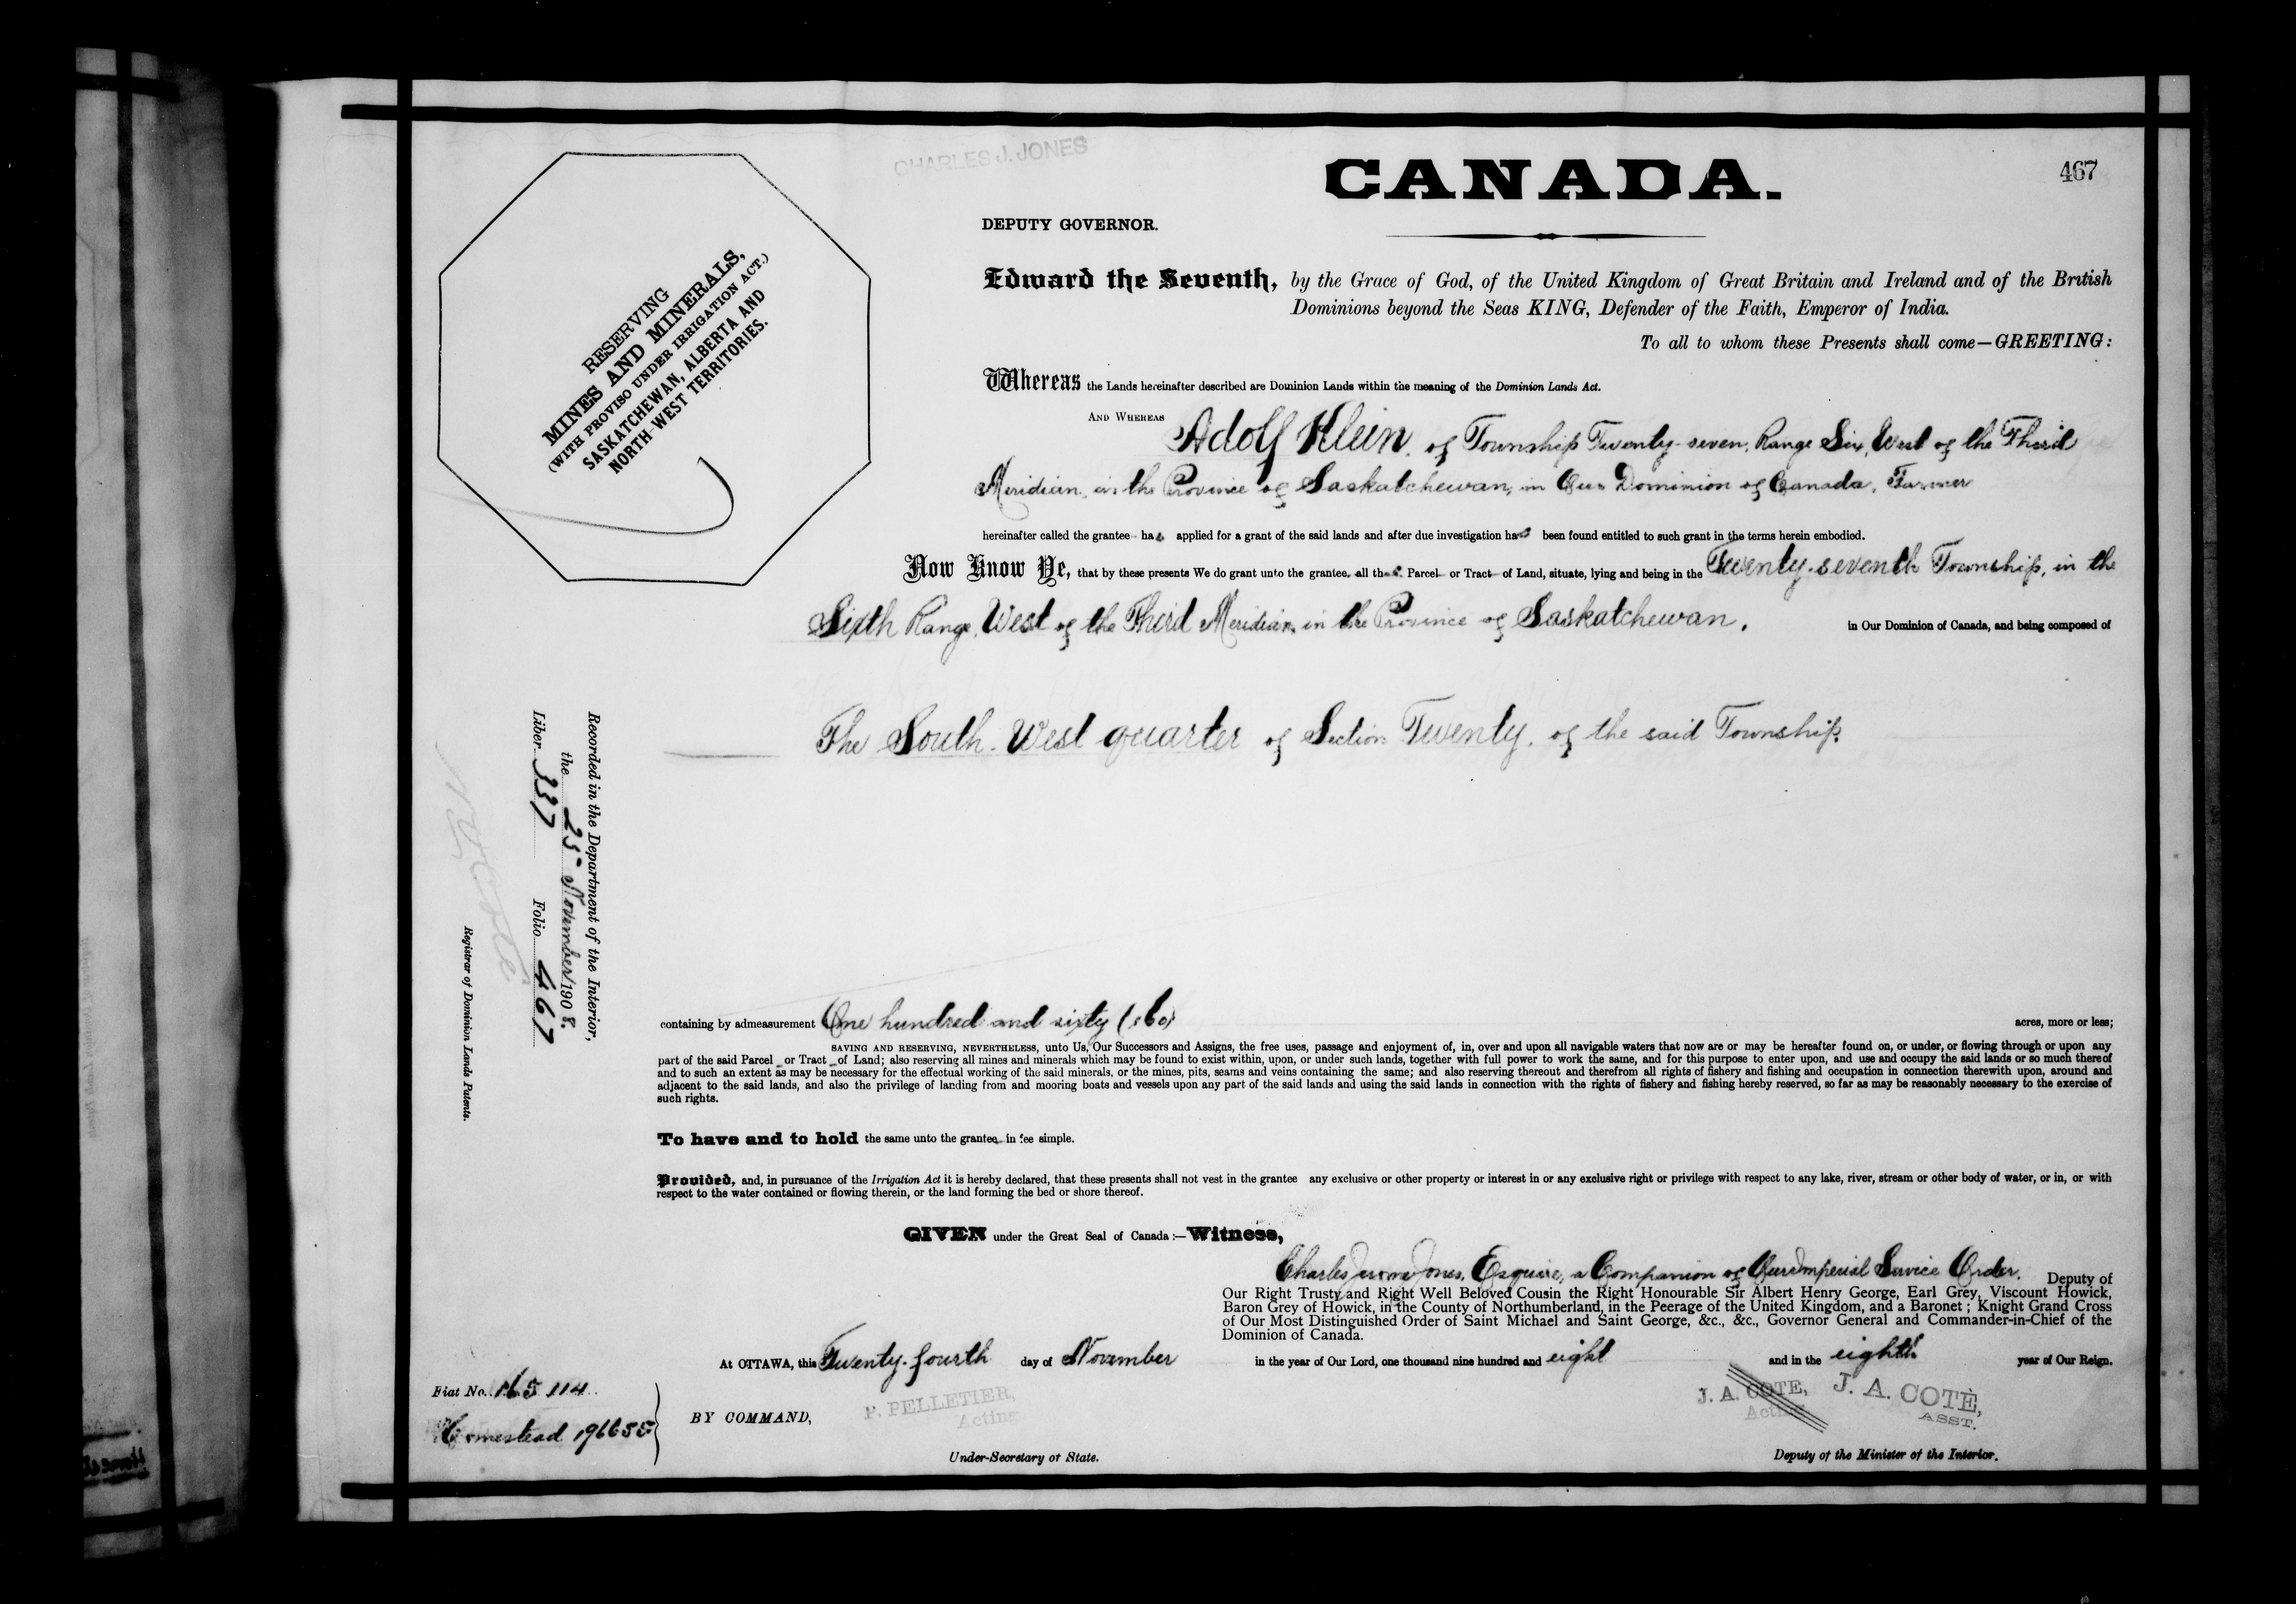 CHARLES J. JONES
CANADA.
467
DEPUTY GOVERNOR.
RESERVING
MINES AND MINERALS,
(WITH PROVISO UNDER IRRIGATION ACT.)
SASKATCHEWAN, ALBERTA AND
NORTH-WEST TERRITORIES.
Edward the Seventh, by the Grace of God, of the United Kingdom of Great Britain and Ireland and of the British
Dominions beyond the Seas KING, Defender of the Faith, Emperor of India.
To all to whom these Presents shall come—GREETING:
Whereas the Lands hereinafter described are Dominion Lands within the meaning of the Dominion Lands Act.
AND WHEREAS Adolf Klein, of Township Twenty-seven, Range Six, West of the Third
Meridian, in the Province of Saskatchewan, in Our Dominion of Canada, Farmer
hereinafter called the grantee has applied for a grant of the said lands and after due investigation has been found entitled to such grant in the terms herein embodied.
Now Know Ye, that by these presents We do grant unto the grantee, all that Parcel or Tract of Land, situate, lying and being in the Twenty-seventh Township, in the
Sixth Range, West of the Third Meridian, in the Province of Saskatchewan, in Our Dominion of Canada, and being composed of
The South-West quarter of Section Twenty, of the said Township.
Recorded in the Department of the Interior,
the 25 November 1908.
Liber 337 Folio 467
Registrar of Dominion Lands Patents.
containing by admeasurement One hundred and sixty (160) acres, more or less;
SAVING AND RESERVING, NEVERTHELESS, unto Us, Our Successors and Assigns, the free uses, passage and enjoyment of, in, over and upon all navigable waters that now are or may be hereafter found on, or under, or flowing through or upon any
part of the said Parcel or Tract of Land; also reserving all mines and minerals which may be found to exist within, upon, or under such lands, together with full power to work the same, and for this purpose to enter upon, and use and occupy the said lands or so much thereof
and to such an extent as may be necessary for the effectual working of the said minerals, or the mines, pits, seams and veins containing the same; and also reserving thereout and therefrom all rights of fishery and fishing and occupation in connection therewith upon, around and
adjacent to the said lands, and also the privilege of landing from and mooring boats and vessels upon any part of the said lands and using the said lands in connection with the rights of fishery and fishing hereby reserved, so far as may be reasonably necessary to the exercise of
such rights.
To have and to hold the same unto the grantee in fee simple.
Provided, and, in pursuance of the Irrigation Act it is hereby declared, that these presents shall not vest in the grantee any exclusive or other property or interest in or any exclusive right or privilege with respect to any lake, river, stream or other body of water, or in, or with
respect to the water contained or flowing therein, or the land forming the bed or shore thereof.
GIVEN under the Great Seal of Canada:—Witness,
Charles Jerome Jones, Esquire, a Companion of Our Imperial Service Order, Deputy of
Our Right Trusty and Right Well Beloved Cousin the Right Honourable Sir Albert Henry George, Earl Grey, Viscount Howick,
Baron Grey of Howick, in the County of Northumberland, in the Peerage of the United Kingdom, and a Baronet; Knight Grand Cross
of Our Most Distinguished Order of Saint Michael and Saint George, &c., &c., Governor General and Commander-in-Chief of the
Dominion of Canada.
At OTTAWA, this Twenty-fourth day of November in the year of Our Lord, one thousand nine hundred and eight and in the eighth year of Our Reign.
Fiat No. 165114
Homestead 196655
BY COMMAND,
P. PELLETIER,
Acting
Under-Secretary of State.
J. A. COTE,
Acting
J. A. COTÈ,
ASST.
Deputy of the Minister of the Interior.